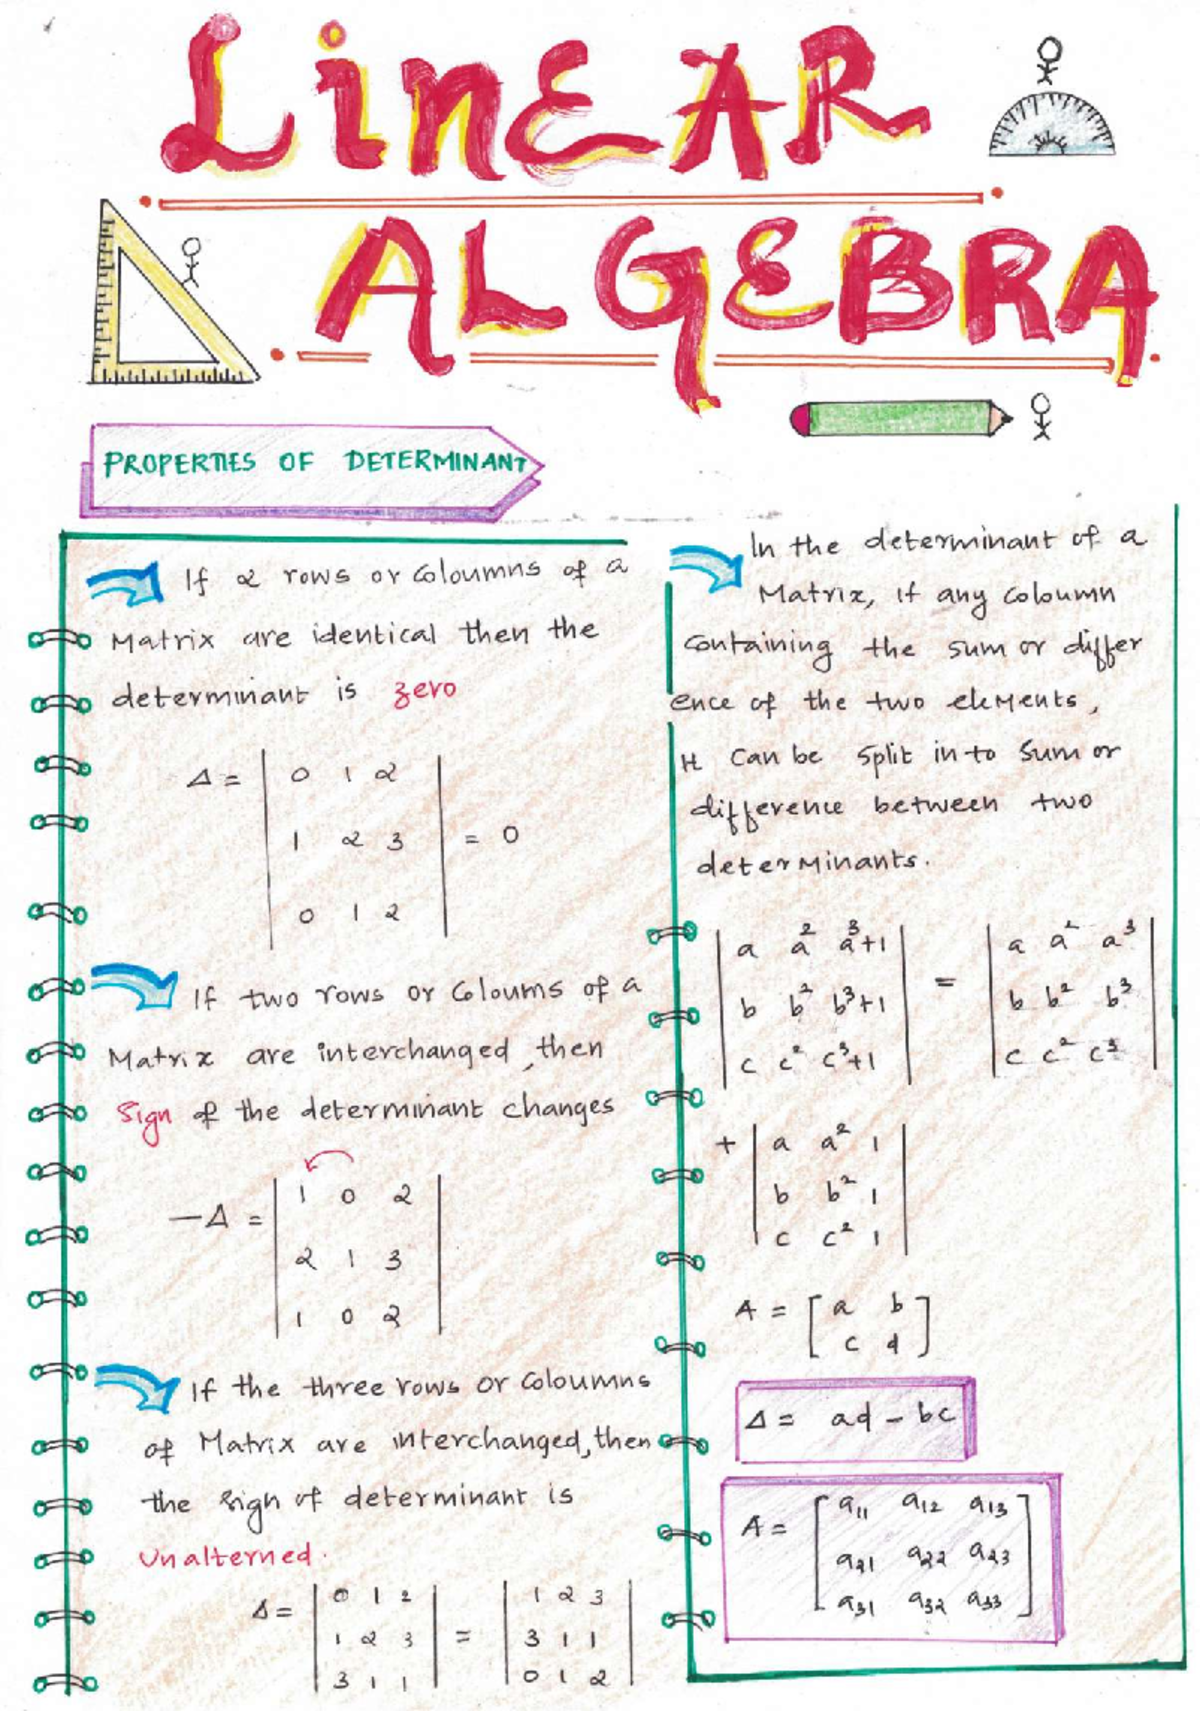 LINEAR
ALGEBRA
PROPERTIES OF DETERMINANT
If 2 rows or coloumns of a
Matrix are identical then the
determinant is zero
Δ = | 0 1 2 |
| 1 2 3 | = 0
| 0 1 2 |
If two rows or coloums of a
Matrix are interchanged, then
Sign of the determinant changes
-Δ = | 1 0 2 |
| 2 1 3 |
| 1 0 2 |
If the three rows or coloumns
of Matrix are interchanged, then
the sign of determinant is
unalterned.
Δ = | 0 1 2 | = | 1 2 3 |
| 1 2 3 | | 3 1 1 |
| 3 1 1 | | 0 1 2 |
In the determinant of a
Matrix, if any coloumn
containing the sum or differ
ence of the two elements,
it can be split in to sum or
difference between two
determinants.
| a a² a³+1 | = | a a² a³ |
| b b² b³+1 | | b b² b³ |
| c c² c³+1 | | c c² c³ |
+ | a a² 1 |
| b b² 1 |
| c c² 1 |
A = [ a b ]
[ c d ]
Δ = ad - bc
A = [ a₁₁ a₁₂ a₁₃ ]
[ a₂₁ a₂₂ a₂₃ ]
[ a₃₁ a₃₂ a₃₃ ]